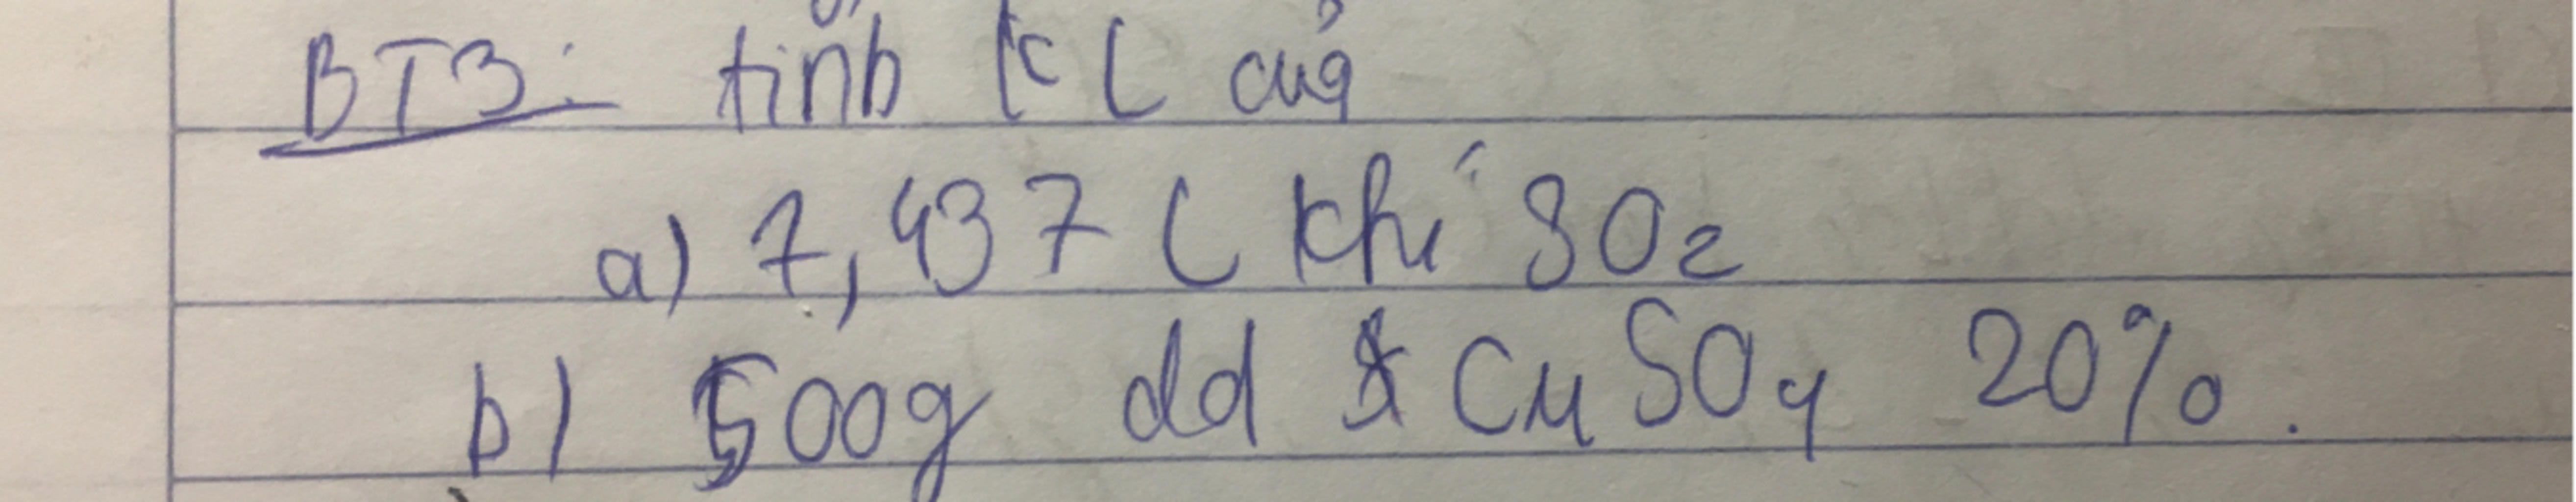 BT3: tính KL của
a) 7,437 L khí SO2
b) 500g dd CuSO4 20%.